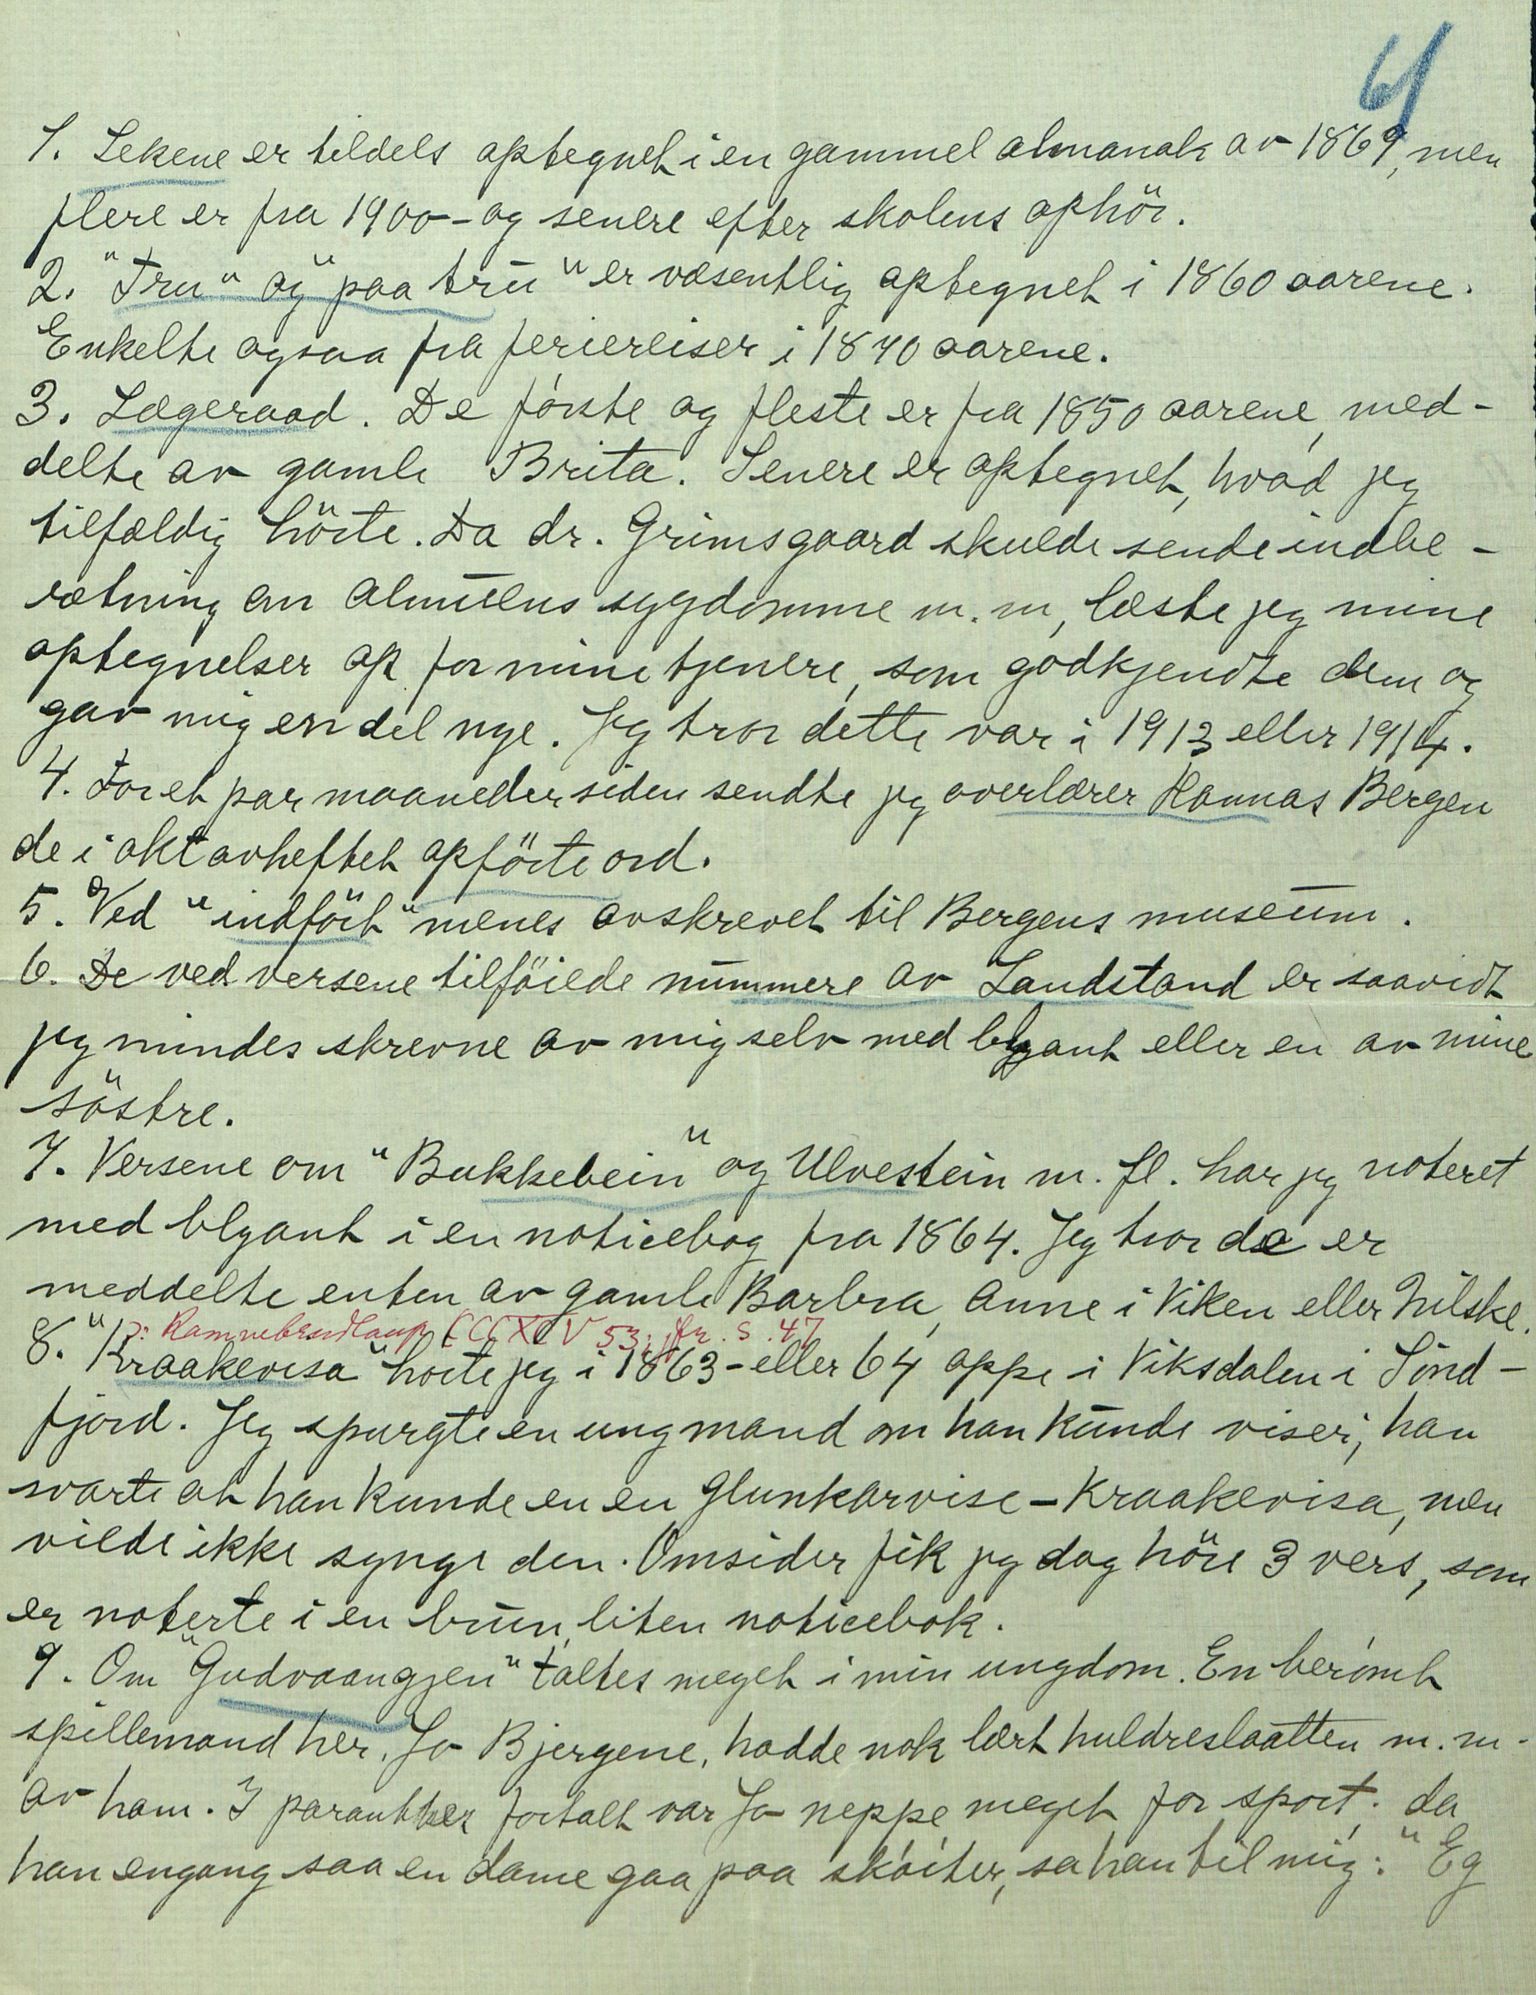 61
1. Lekene er tildels optegnet i en gammel almanak av 1869, men
flere er fra 1900 - og senere efter skolens ophör.
2. "Tru" og "paa tru" er væsentlig optegnet i 1860 aarene.
Enkelte ogsaa fra feriereiser i 1870 aarene.
3. Lægeraad. De første og fleste er fra 1850 aarene, med-
delte av gamle Brita. Senere er optegnet, hvad jeg
tilfældig hörte. Da dr. Grimsgaard skulde sende indbe-
retning om almuens sygdomme m. m, læste jeg mine
optegnelser op for mine tjenere, som godkjendte dem og
gav mig en del nye. Jeg tror dette var i 1913 eller 1914.
4. For et par maaneder siden sendte jeg overlærer Kannas Bergen
de i oktavheftet opförte ord.
5. Ved "indfört" menes avskrevet til Bergens museum.
6. De ved versene tilföiede nummere av Landstand er saavidt
jeg mindes skrevne av mig selv med blyant eller en av mine
söstre.
7. Versene om "Bukkebein" og Ulvestein m. fl. har jeg noteret
med blyant i en noticebog fra 1864. Jeg tror de er
meddelte enten av gamle Barbra, Anne i Viken eller Nilske.
ɔ: Ramnebrudlaup CCCXCV 53; jfr. s. 47
8. "Kraakevisa" hørte jeg i 1863 - eller 64 oppe i Viksdalen i Sönd-
fjord. Jeg spurgte en ung mand om han kunde viser; han
svarte at han kunde en en glunkarvise - Kraakevisa, men
vilde ikke synge den. Omsider fik jeg dog höre 3 vers, som
er noterte i en brun, liten noticebok.
9. Om "Gudvaangjen" taltes meget i min ungdom. En berömt
spillemand her, Jo Bjergene, hadde nok lært huldreslaatten m. m.
av ham. I parantes fortalt var Jo neppe meget for sport; da
han engang saa en dame gaa paa sköiter, sa han til mig: "Eg